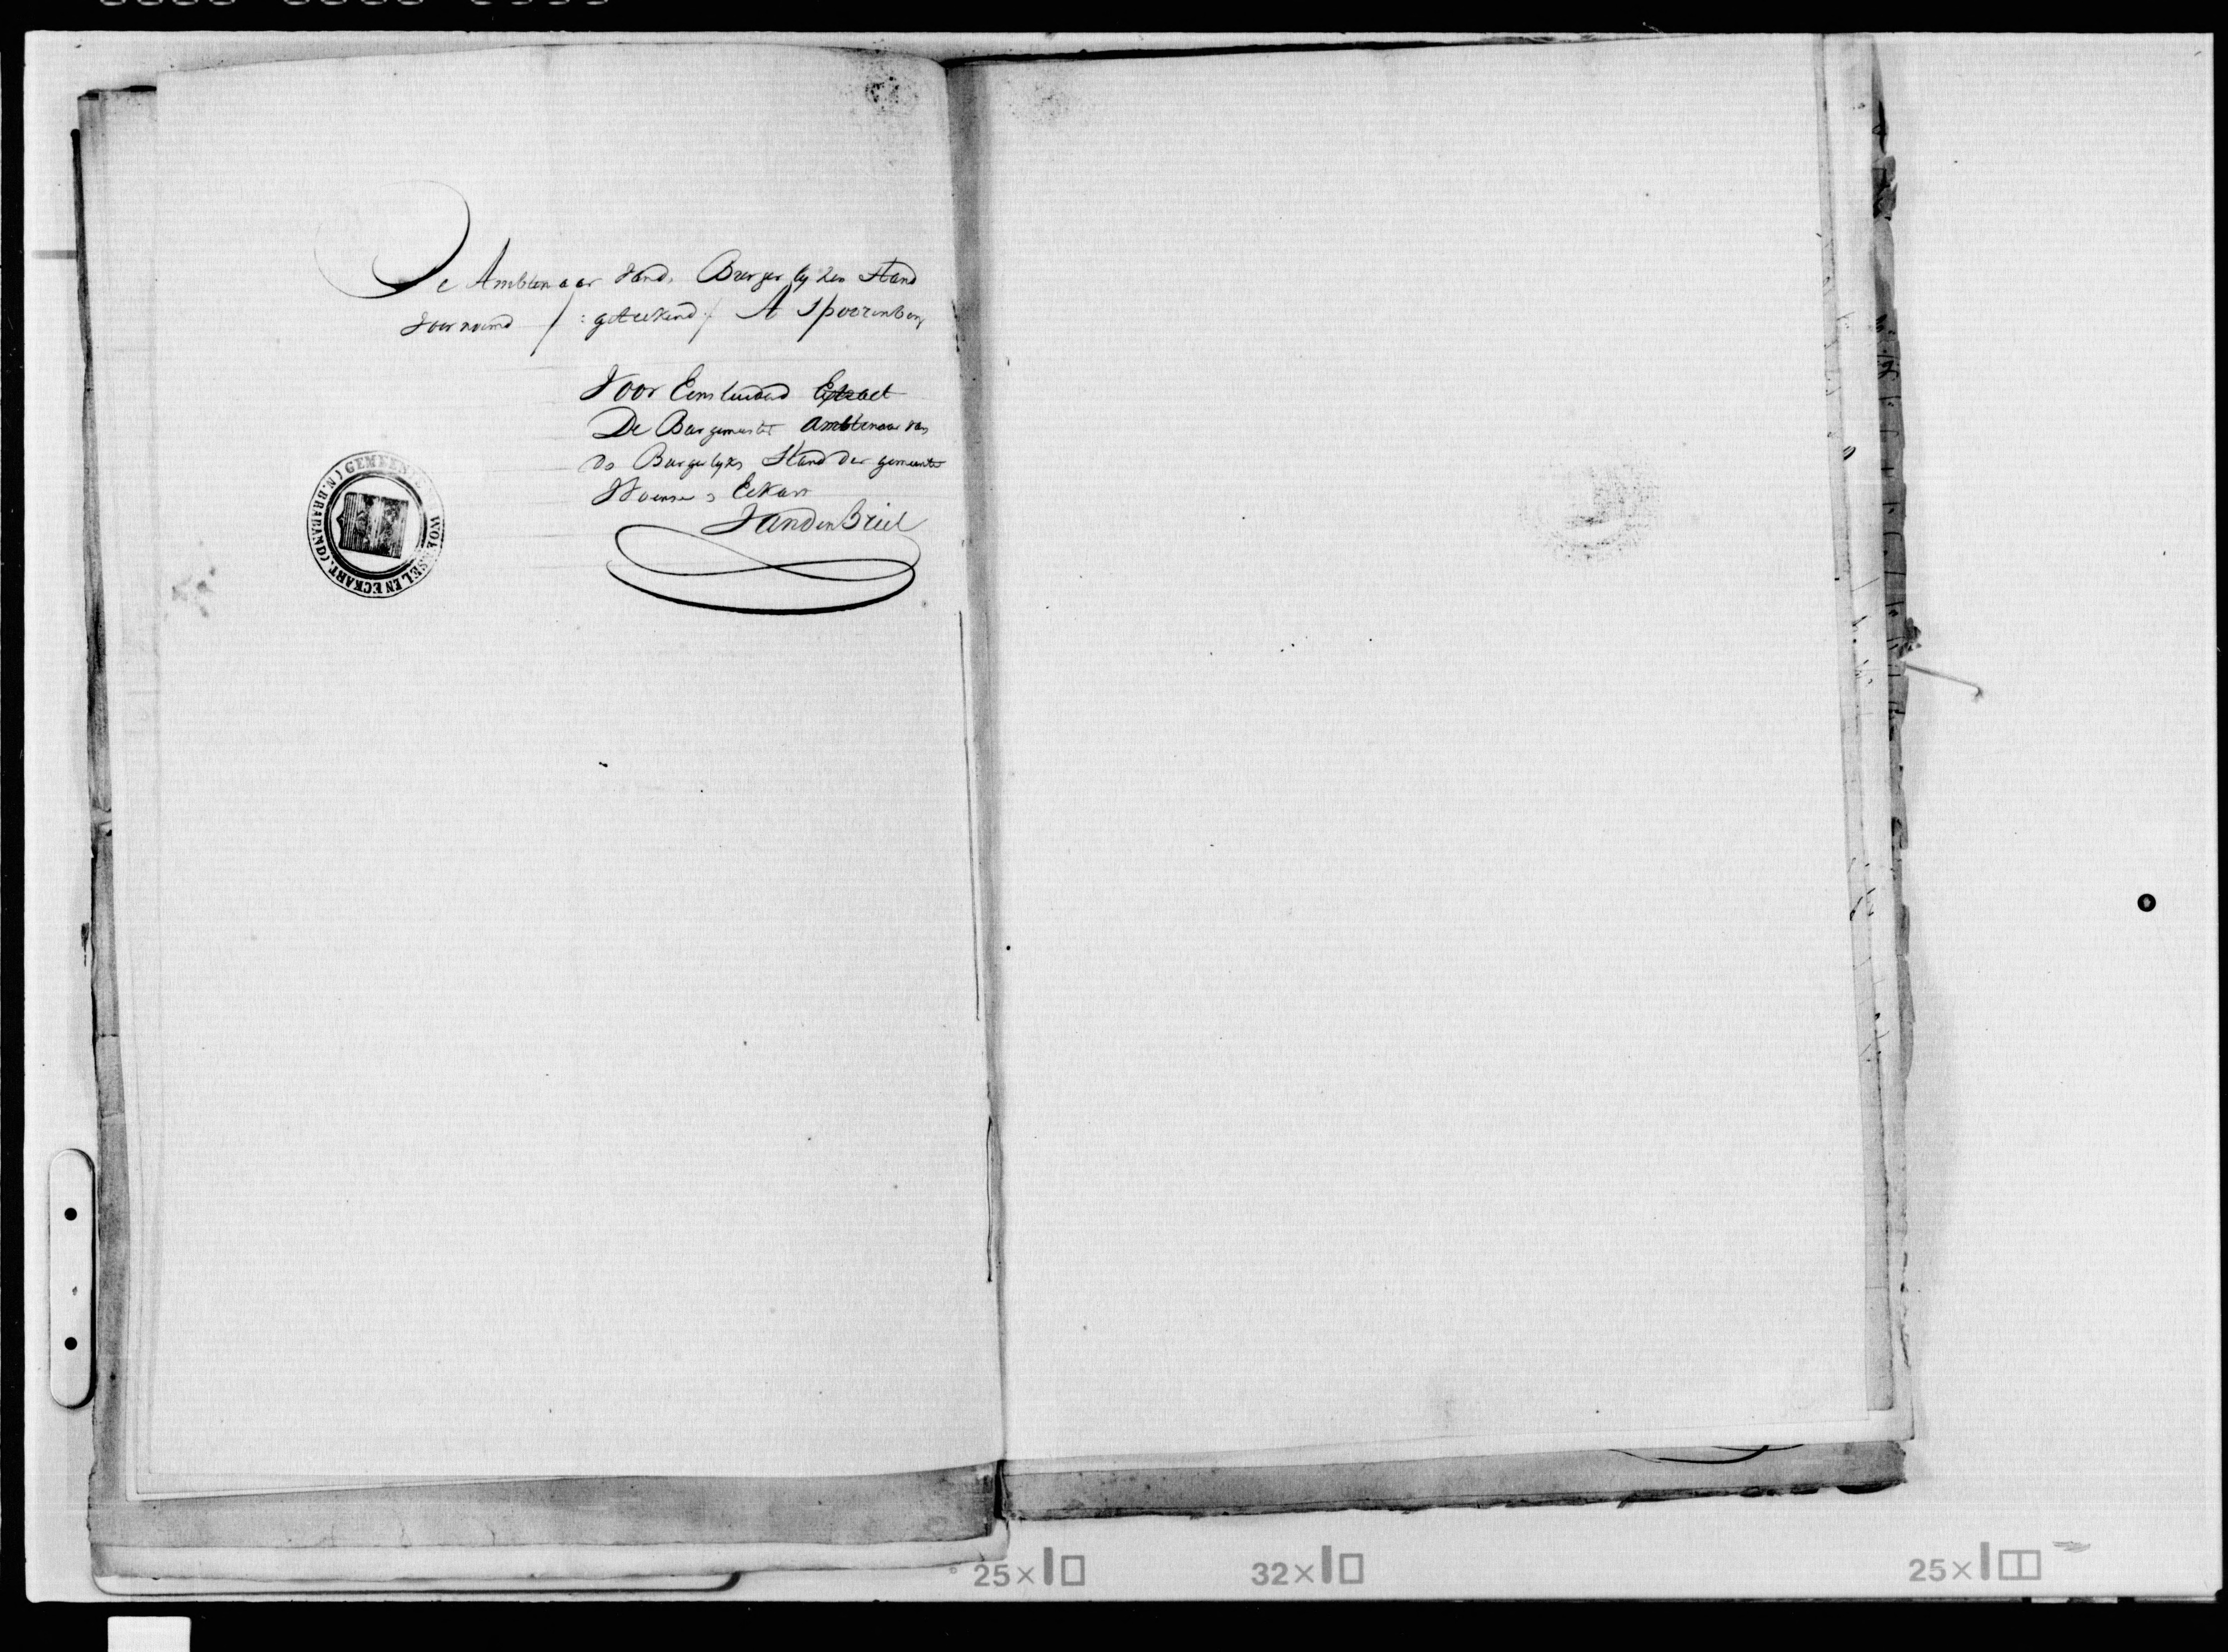 De Ambtenaar van d. Burgerlyken Stand
Voornoemd /: geteekend :/ A Spoorenberg
Voor Eensluidend Extract
De Burgemeester Ambtenaar van
de Burgerlyke Stand der gemeente
Woensel en Eckart
VandenBriel
GEMEENTE WOENSEL EN ECKART. (N. BRABAND)
25× 32× 25×